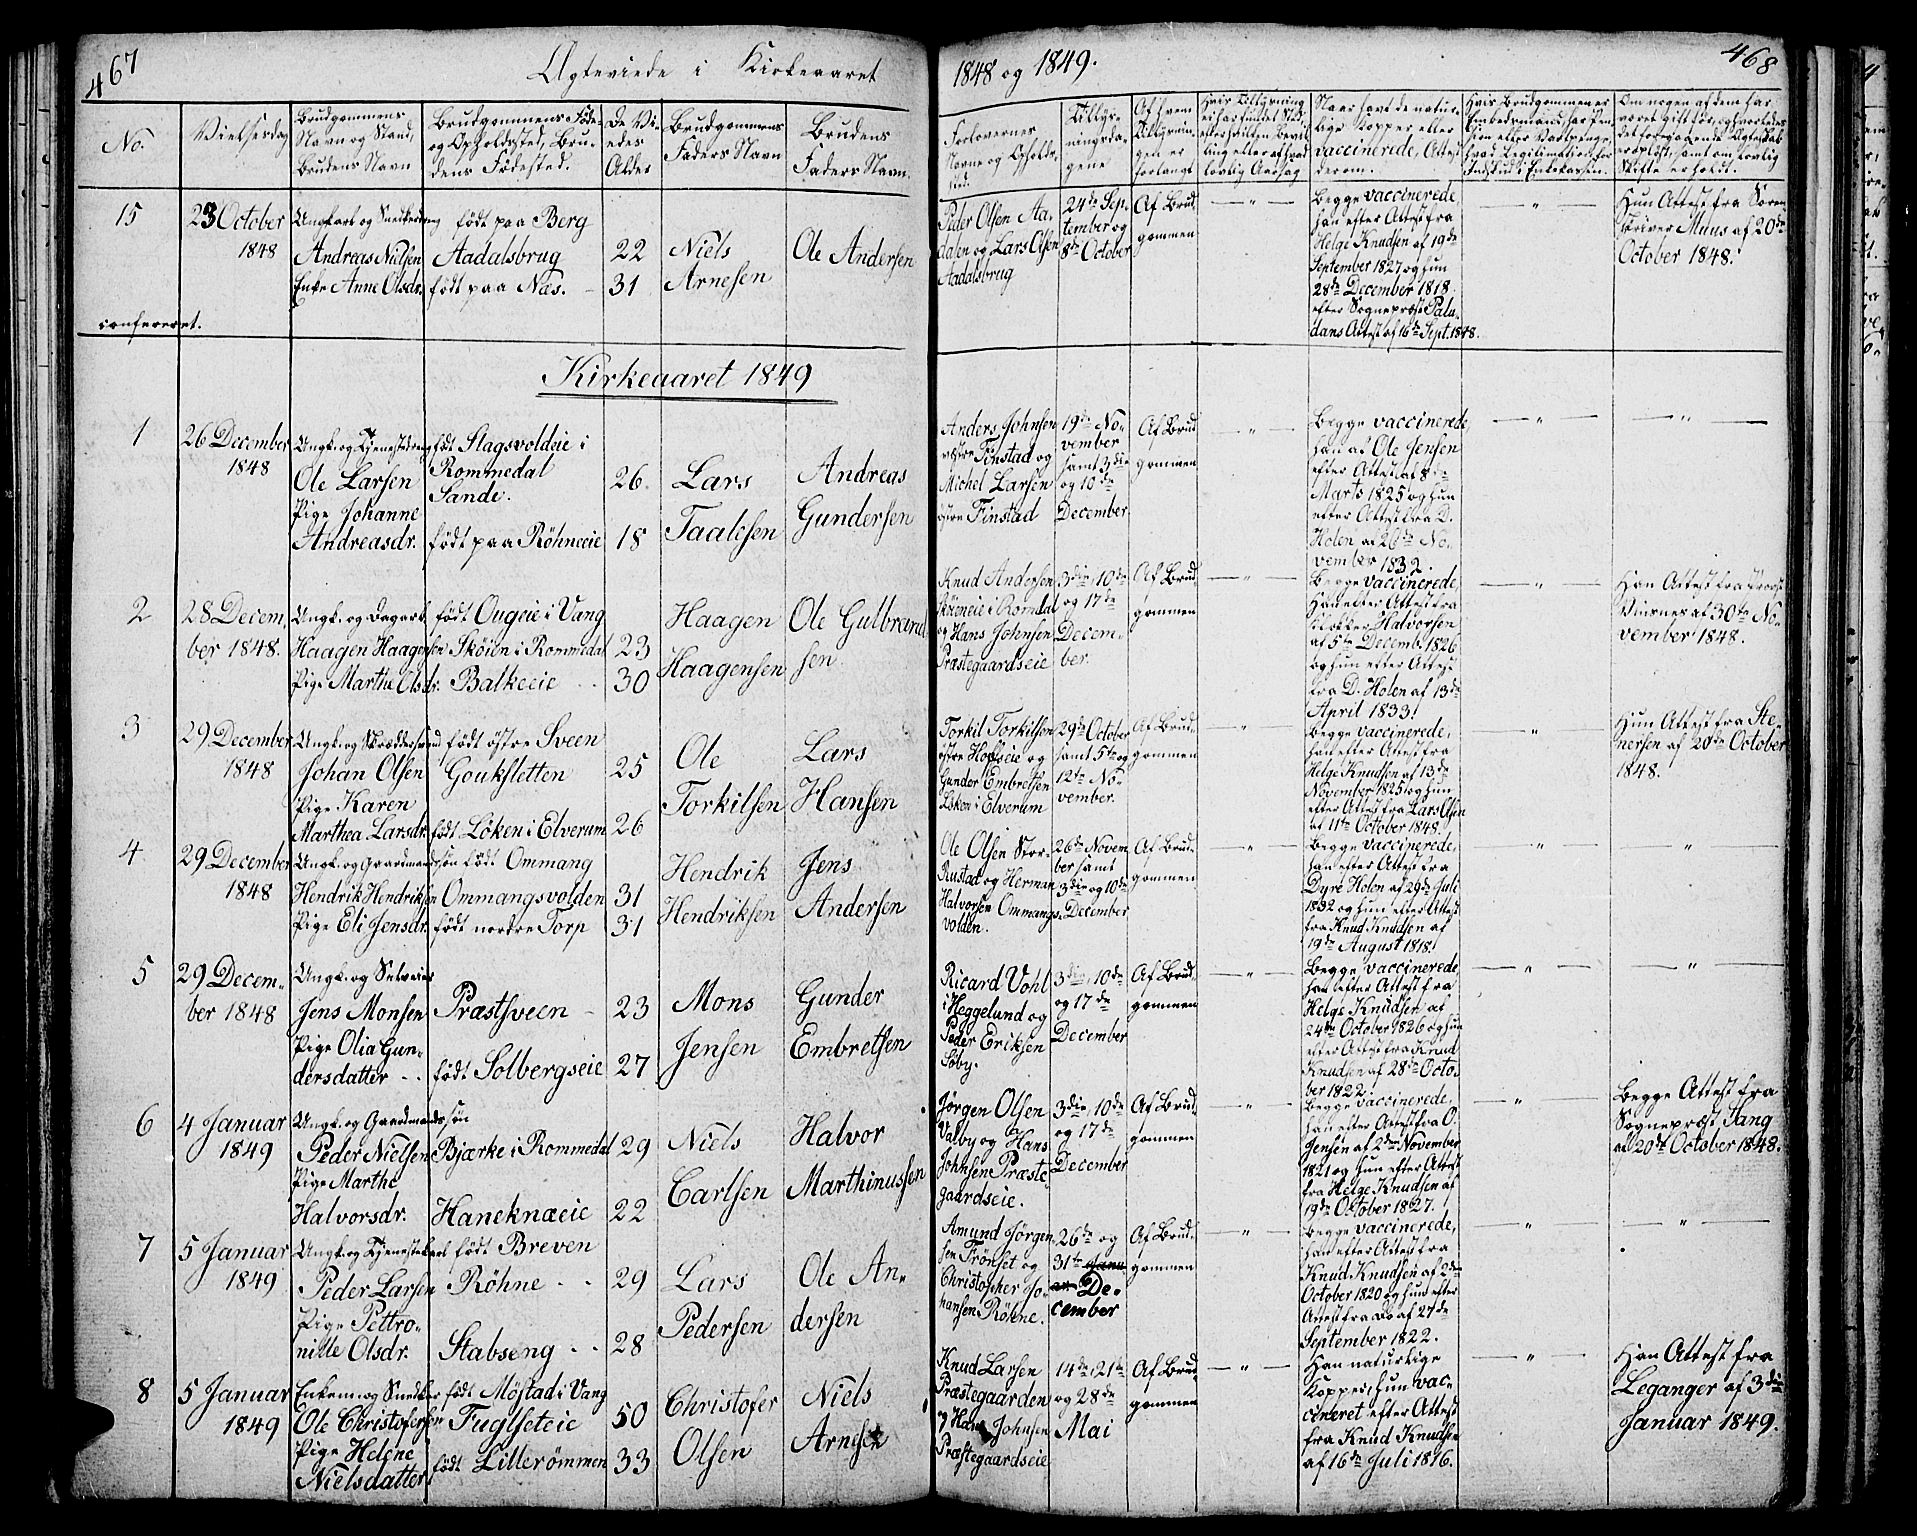 467
Ægteviede i Kirkeaaret
1848 og 1849.
468
No.
Vielsesdag
Brudgommens Navn og Stand, Brudens Navn
Brudgommens Føde- og Opholdssted, Brudens Fødested.
De Viedes Alder
Brudgommens Faders Navn
Brudens Faders Navn.
Forlovernes Navne og Opholdssted.
Tillysningsdagene
Af hvem Tillysningen er forlangt
Naar havt de naturlige Kopper eller vaccinerede, Attest derom.
15
23 October 1848
Ungkarl og Snedkerdreng
Andreas Nielsen
Enke Anne Olsdr.
født paa Berg
Aadalsbrug
født paa Næs.
22
31
Niels
Arnesen
Ole Andersen
Peder Olsen Aadalen og Lars Olsen Aadalsbrug
24de September og 8de October
Af Brudgommen
Begge vaccinerede, han efter Attest fra Helge Knudsen af 19de September 1827 og hun 28de December 1818 efter Sognepræst Paludans Attest af 16de Sept. 1848.
Hun Attest fra Sorenskriver Muus af 20de October 1848.
confereret.
Kirkeaaret 1849
1
26 December 1848
Ungk. og Tjenestedreng
Ole Larsen
Pige Johanne
Andreasdr.
født Slagsvoldeie i
Rommedal
Sande.
født paa Røhneeie
26.
18
Lars
Taalesen
Andreas
Gundersen
Anders Johnsen vestre Finstad og Michel Larsen østre Finstad
19de November samt 3die og 10de December
Af Brudgommen
Begge vaccinerede, han af Ole Jensen efter Attest af 8de Marts 1825 og hun efter Attest fra D. Holen af 26de November 1832.
2
28 December 1848.
Ungk. og Dagarb.
Haagen Haagensen
Pige Marthe Olsdr.
født Ougeie i Vang
Skøien i Rommedal
Balkeeie
23
30
Haagen
Haagensen
Ole Gulbrandsen
Knud Andersen Skøieneie i Romdal og Hans Johnsen Præstegaardseie
3die, 10de og 17de December.
Af Brudgommen
Begge vaccinerede, Han efter Attest fra Klokker Halvorsen af 5te Decemb. 1826 og hun efter Attest fra D. Holen af 13de April 1833.
Han Attest fra Provst Viursnes af 30te November 1848.
3
29 December 1848
Ungk. og Skræddersvend
Johan Olsen
Pige Karen
Marthea Larsdr.
født østre Sveen
Goukstetten
født Løken i Elverum
25
26
Ole
Torkilsen
Lars
Hansen
Torkil Torkilsen østre Hoffseie og Gunder Embretsen Løken i Elverum
29de October samt 5te og 12te November.
Af Brudgommen
Begge vaccinerede, han efter Attest fra Helge Knudsen af 13de November 1825 og hun efter Attest fra Lars Olsen af 11te October 1848.
Hun Attest fra Stenersen af 20de October 1848.
4
29 December 1848
Ungk. og Gaardmandssøn
Hendrik Hendriksen
Pige Eli Jensdr.
født Ommang
Ommangsvolden
født nordre Torp
31
31
Hendrik
Hendriksen
Jens
Andersen
Ole Olsen StorRustad og Herman Halvorsen Ommangsvolden.
26de November samt 3die og 10de December
Af Brudgommen
Begge vaccinerede, han efter Attest fra Dyre Holen af 29de Juli 1832 og hun efter Attest fra Knud Knudsen af 19de August 1818.
5
29 December 1848
Ungk. og Selveier
Jens Monsen
Pige Olia Gundersdatter
Præstsveen
født Solbergseie
23
27
Mons
Jensen
Gunder
Embretsen
Ricard Vohl i Heggelund og Peder Eriksen Søby.
3die, 10de og 17de December
Af Brudgommen
Begge vaccinerede, han efter Attest fra Helge Knudsen af 24de October 1826 og hun efter Attest fra Knud Knudsen af 28de October 1822.
6
4 Januar 1849
Ungk. og Gaardmandssøn
Peder Nielsen
Pige Marthe
Halvorsdr.
Bjærke i Rommedal
Haneknæeie
29
22
Niels
Carlsen
Halvor
Marthinussen
Jørgen Olsen Valby og Hans Johnsen Præstegaardseie.
3die, 10de og 17de December
Af Brudgommen
Begge vaccinerede, han efter Attest fra O. Jensen af 2den November 1821 og hun efter Attest fra Helge Knudsen af 19de October 1827.
Begge Attest fra Sognepræst Sang af 20de October 1848.
7
5 Januar 1849
Ungk. og Tjenestekarl
Peder Larsen
Pige Pettronille Olsdr.
født Breven
Røhne
Stabseng
29
28
Lars
Pedersen
Ole Andersen
Amund Jørgensen Frønset og Christopher Johansen Røhne.
26de og 31te Januar December
Af Brudgommen
Begge vaccinerede, han efter Attest fra Knud Knudsen af 2den October 1820 og hun efter Attest fra do af 27de September 1822.
8
5 Januar 1849
Enkem. og Snedker
Ole Christofersen
Pige Helene
Nielsdatter
født Møstad i Vang
Fuglseteie
født Lillerømmen
50
33
Christofer
Olsen
Niels
Arnesen
Knud Larsen Præstegaarden og Hans Johnsen Præstegaardseie
14de, 21de og 28de Mai
Af Brudgommen
Han naturlige Kopper, hun vaccineret efter Attest fra Knud Knudsen af 16de Juli 1816.
Han Attest fra Leganger af 3die Januar 1849.